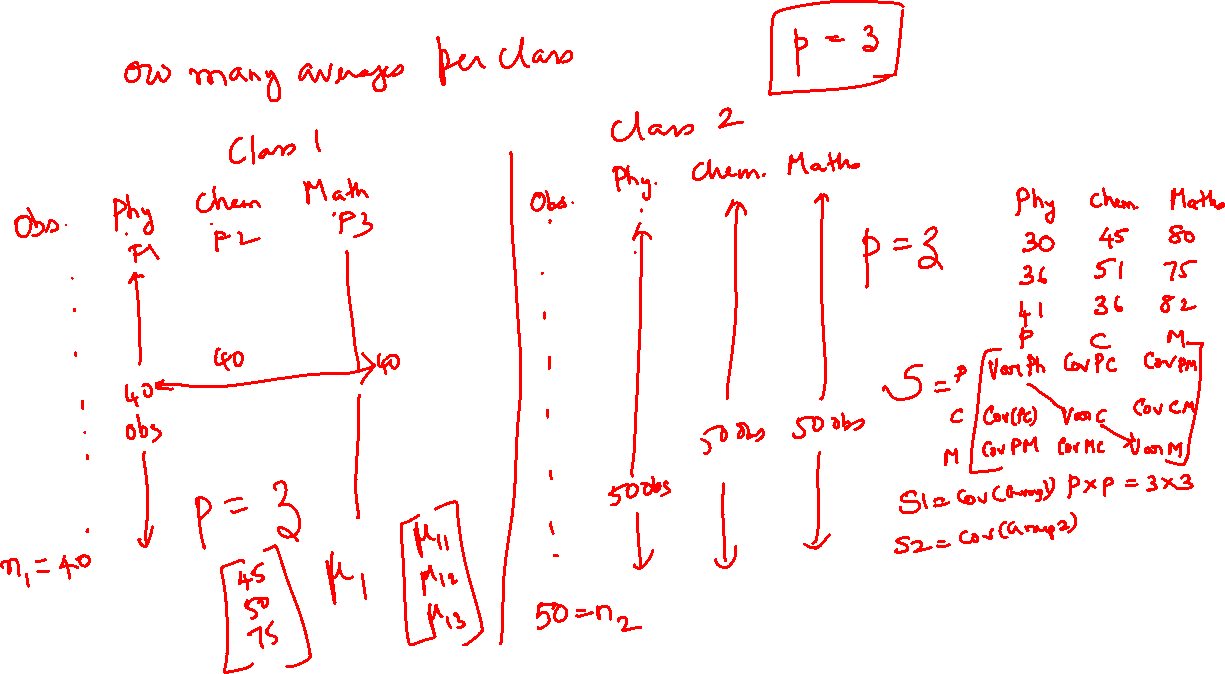 ow many averages per class
p = 3
Class 1
Obs. Phy Chem Math
P1 P2 P3
40 40 40
obs
n₁ = 40
p = 3
[45
50
75]
μ₁ [μ₁₁
μ₁₂
μ₁₃]
Class 2
Obs. Phy. Chem. Maths
50 obs 50 obs 50 obs
50 = n₂
p = 3
Phy Chem. Maths
30 45 80
36 51 75
41 36 82
P C M
S = P [Var Ph Cov PC Cov PM
C Cov(PC) Var C Cov CM
M Cov PM Cov MC Var M]
S1 = Cov(Group1) P×P = 3×3
S2 = Cov(Group2)